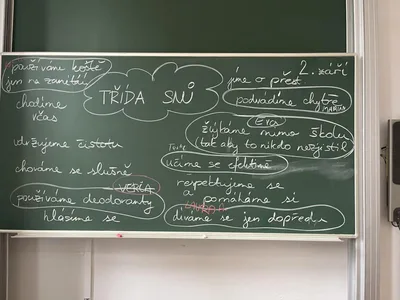 používáme koště
jen na zametání
chodíme
včas
udržujeme čistotu
chováme se slušně
VERČA
používáme deodoranty
hlásíme se
TŘÍDA SNŮ
2. září
jíme o přest.
podvádíme chytře
MARUŠ
Eva
žvýkáme mimo školu
(tak aby to nikdo nezjistil)
učíme se efektivně
respektujeme se
a
pomáháme si
díváme se jen dopředu